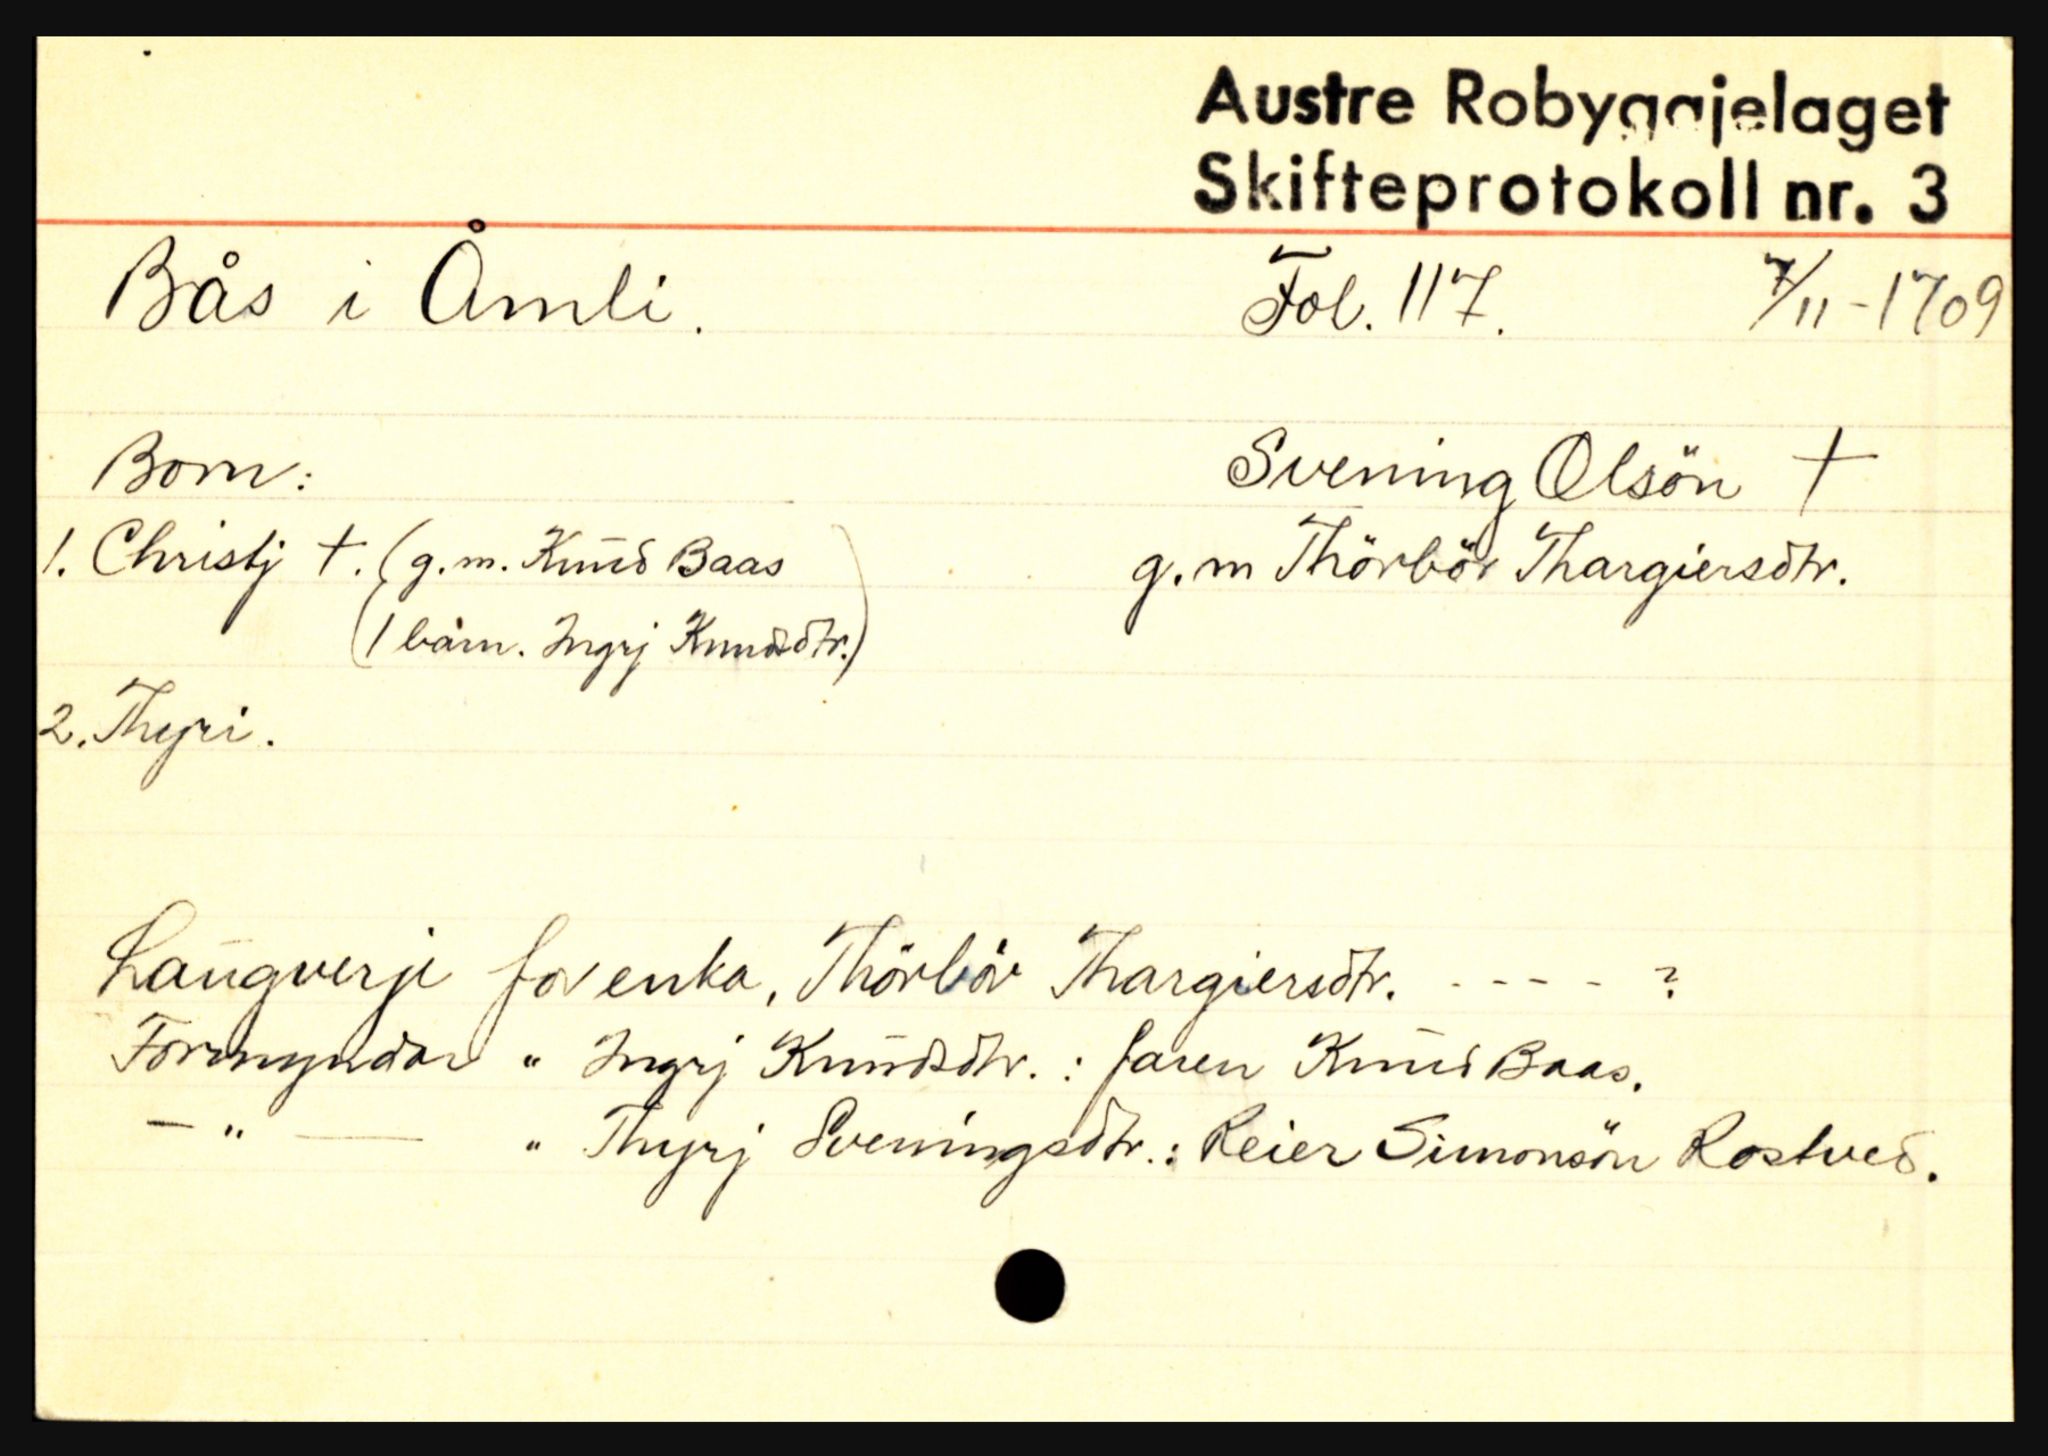 Austre Robyggjelaget
Skifteprotokoll nr. 3
Bås i Åmli. Fol. 117. 7/11-1709
Born: Svening Olsön †
1. Christj †. (g.m. Knud Baas g.m Thörbör Thargiersdtr.
(1 bårn. Ingrj Knudsdtr.)
2. Thyri.
Laugverje for enka, Thörbör Thargiersdtr. - - - - ?
Formyndar " Ingrj Knudsdtr. : faren Knud Baas.
— " — " Thyrj Sveningsdtr. : Reier Simonsön Rostved.